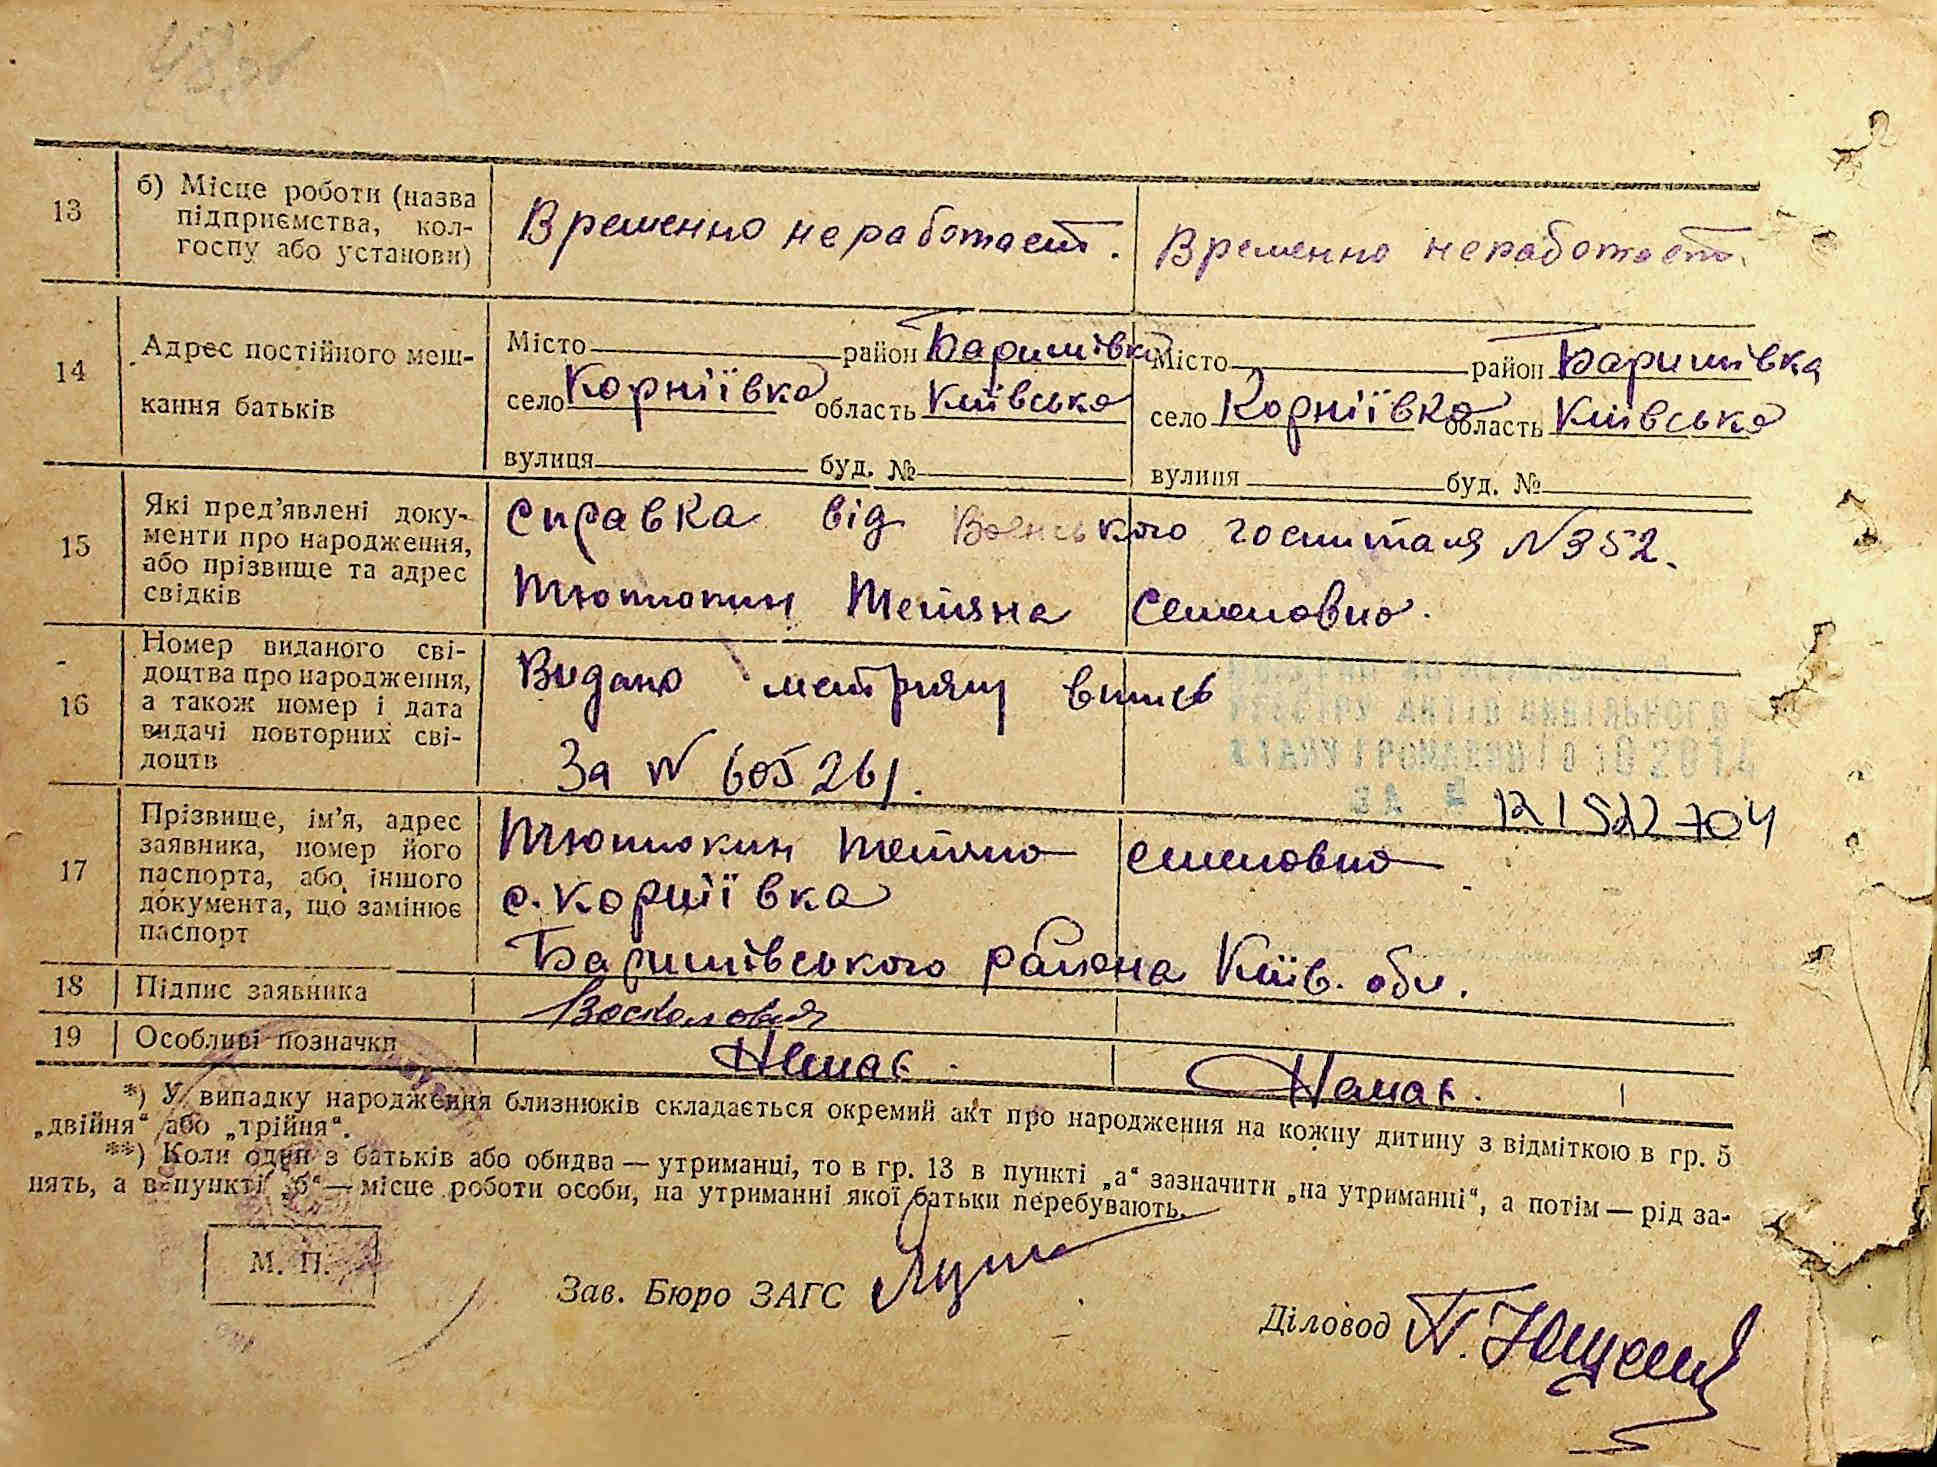 13
б) Місце роботи (назва
підприємства, кол-
госпу або установи)
Временно неработает.
Временно неработает.
14
Адрес постійного меш-
кання батьків
Місто район Баришівка
село Корніївка область Київська
вулиця буд. №
Місто район Баришівка
село Корніївка область Київська
вулиця буд. №
15
Які пред’явлені доку-
менти про народження,
або прізвище та адрес
свідків
Справка від Военського госпиталя N352.
Тютюкин Тетяна Семеновна.
16
Номер виданого сві-
доцтва про народження,
а також номер і дата
видачі повторних сві-
доцтв
Видано метричну впись
За N 605261.
РЕЄСТРУ АКТІВ ЦИВІЛЬНОГО
СТАНУ ГРОМАДЯН 10 10 2014
ЗА № 121522704
17
Прізвище, ім’я, адрес
заявника, номер його
паспорта, або іншого
документа, що замінює
паспорт
Тютюкин Тетяна Семеновна
с. Корніївка
Баришівського района Київ. обл.
18
Підпис заявника
19
Особливі позначки
Немає.
Немає.
*) У випадку народження близнюків складається окремий акт про народження на кожну дитину з відміткою в гр. 5
„двійня“ або „трійня“.
**) Коли один з батьків або обидва — утриманці, то в гр. 13 в пункті „а“ зазначити „на утриманні“, а потім — рід за-
нять, а в пункті „б“ — місце роботи особи, на утриманні якої батьки перебувають.
М. П.
Зав. Бюро ЗАГС
Діловод